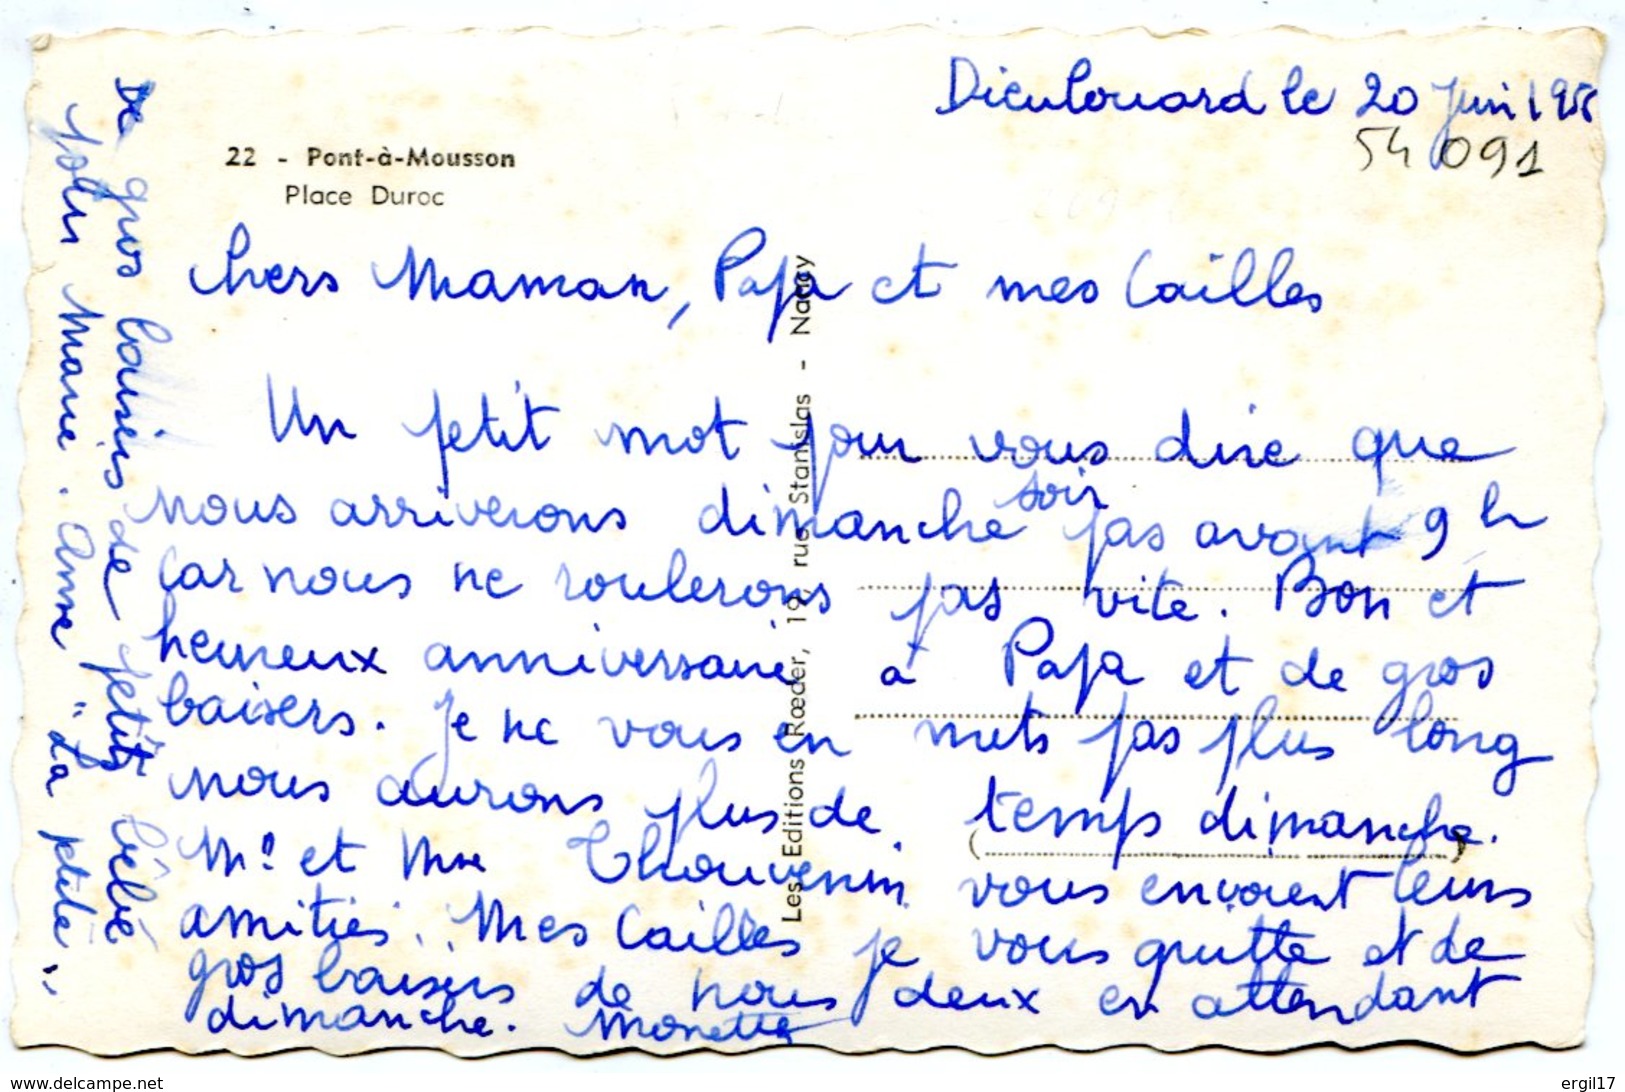 Dieulouard le 20 Juin 195
54 091
22 - Pont-à-Mousson
Place Duroc
Chers Maman, Papa et mes Cailles
Un petit mot pour vous dire que
nous arriverons dimanche soir pas avant 9 h
car nous ne roulerons pas vite. Bon et
heureux anniversaire à Papa et de gros
baisers. Je ne vous en mets pas plus long
nous aurons plus de temps dimanche.
Mr et Mme Thouvenin vous envoient leurs
amitiés. Mes Cailles je vous quitte et de
gros baisers de nous deux en attendant
dimanche. Monette
De gros baisers de petit bébé
pour Marie-Anne "La petite"
Les Editions Rœder, 19, rue Stanislas - Nancy
www.delcampe.net
ergil17